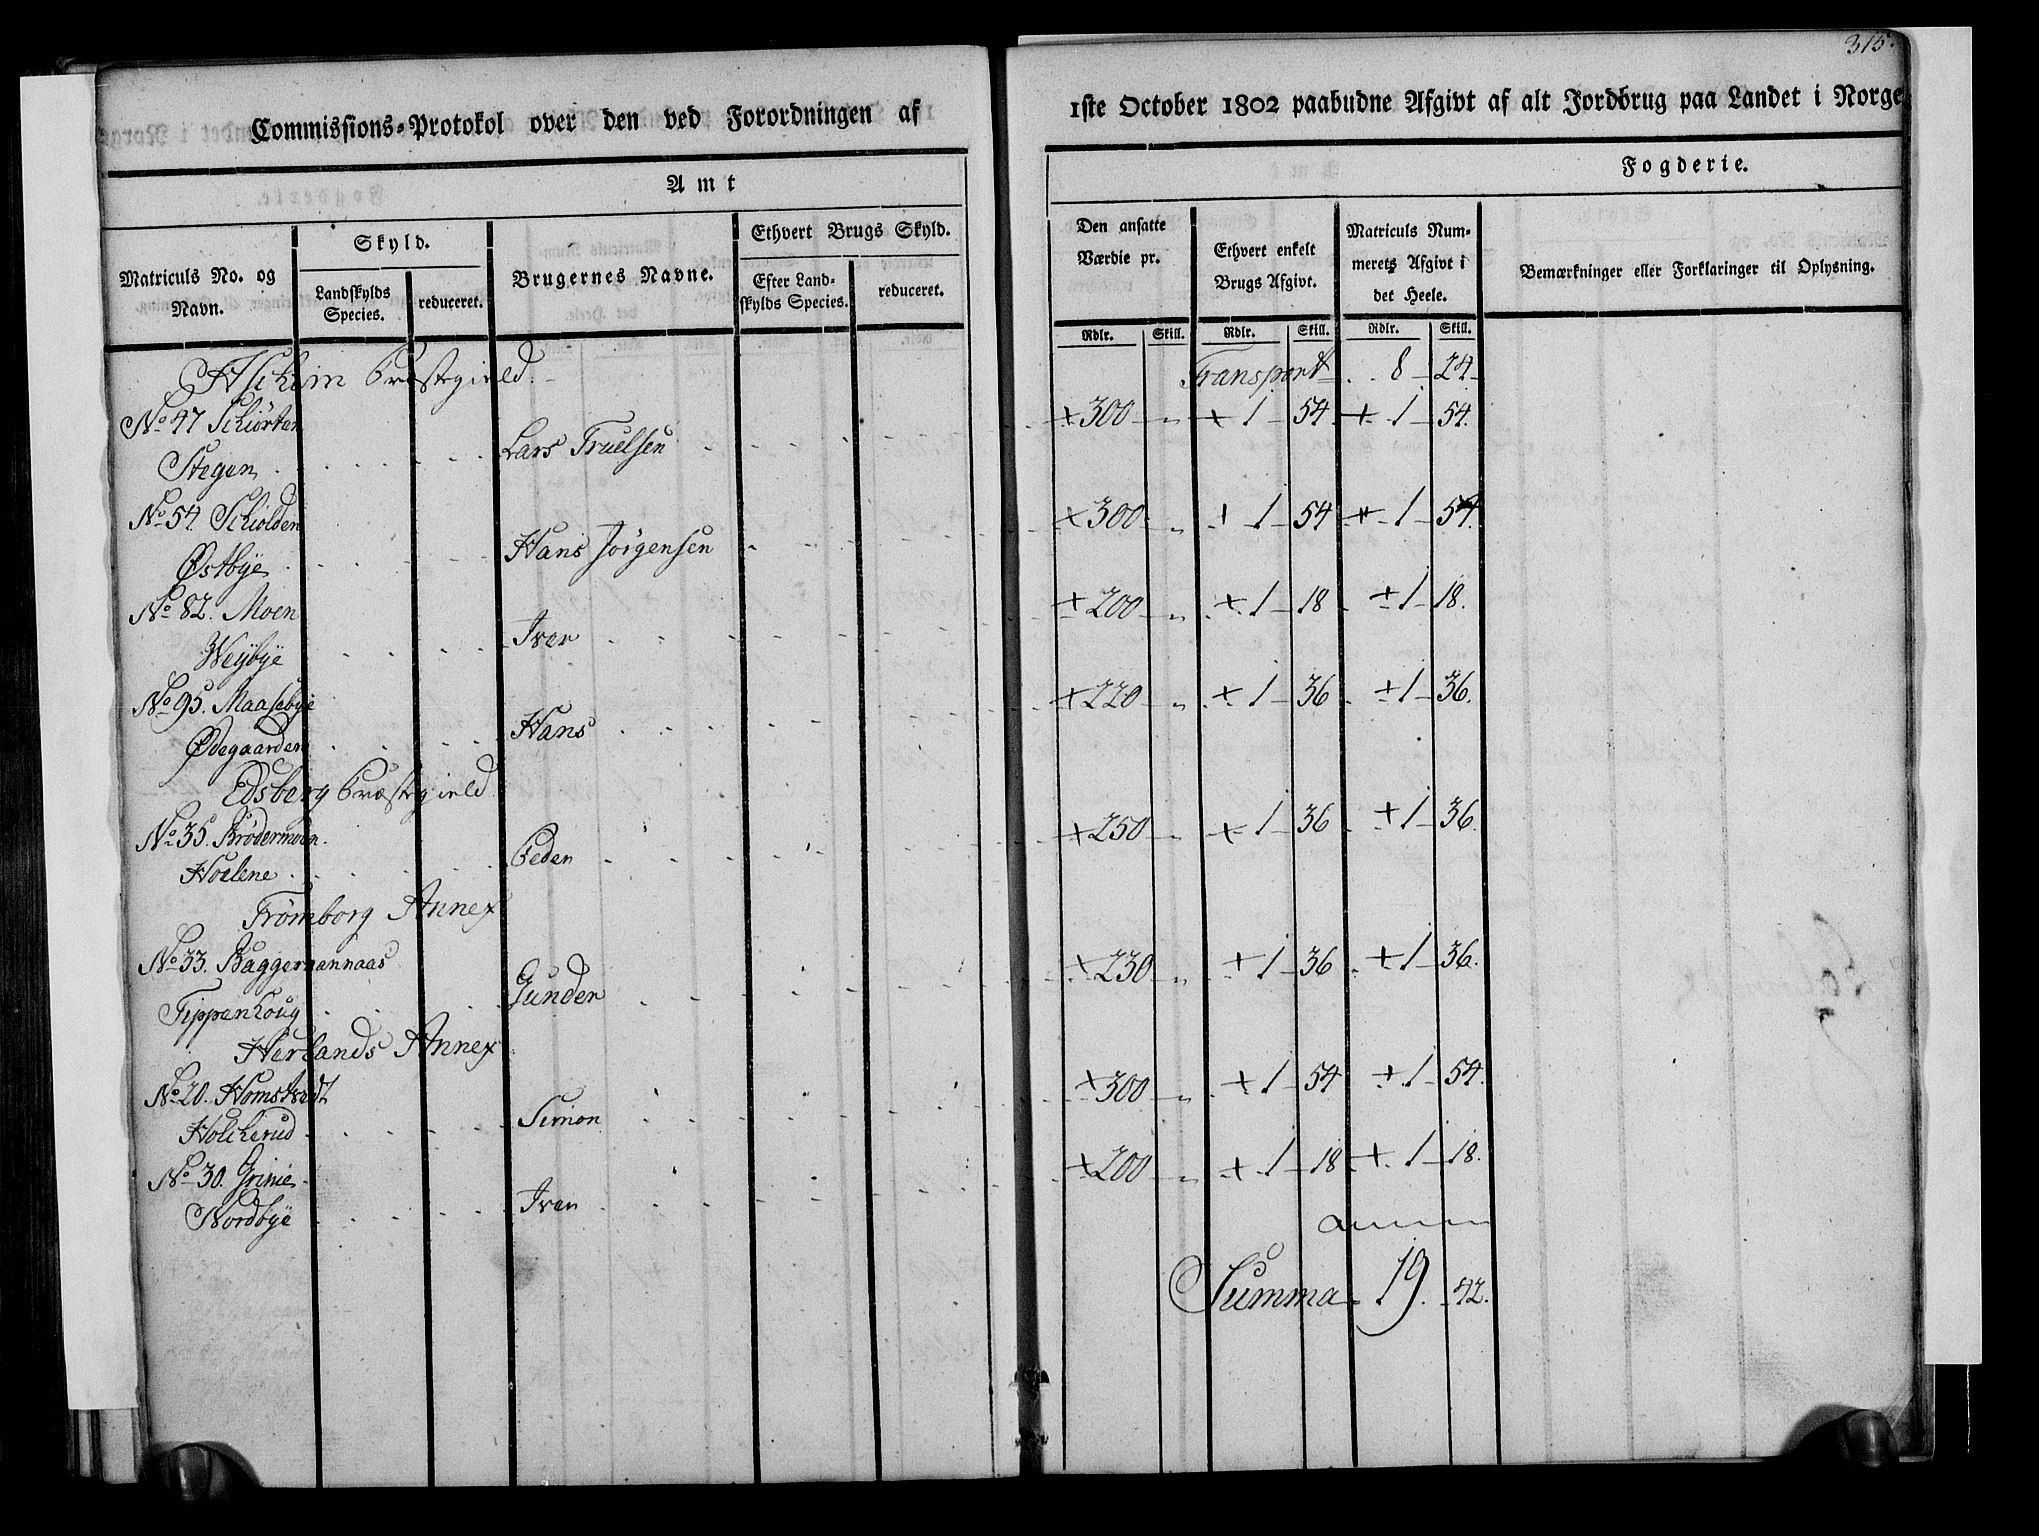 315.
Commissions-Protokol over den ved Forordningen af 1ste October 1802 paabudne Afgivt af alt Jordbrug paa Landet i Norge
Amt
Fogderie.
Matriculs No. og Navn.
Skyld.
Landskylds Species.
reduceret.
Brugernes Navne.
Ethvert Brugs Skyld.
Efter Landskylds Species.
reduceret.
Den ansatte Værdie pr.
Ethvert enkelt Brugs Afgivt.
Matriculs Nummerets Afgivt i det Heele.
Bemærkninger eller Forklaringer til Oplysning.
Rdlr. Skill. Rdlr. Skill. Rdlr. Skill.
Aschim Præstegield
Transport 8 24
No 47 Schiørten + 300 " + 1 54 + 1 54.
Stegen Lars Truelsen
No 54. Schiolden + 300 " + 1 54 + 1 54.
Østbÿe Hans Jørgensen
No 82. Moen + 200 " + 1 18 + 1 18.
Weÿbÿe Iver
No 95. Maasebÿe + 220 " + 1 36 + 1 36.
Ødegaarden Hans
Edsberg Præstegield
No 35. Brødermoen + 250 " + 1 36 + 1 36.
Hoelene Peder
Trømborg Annex
No 33. Baggermannaas + 230 " + 1 36 + 1 36.
Tippenhoug Gunder
Herlands Annex
No 20. Homstvedt + 300 " + 1 54 + 1 54.
Holcherud Simon
No 30. Grimie + 200 " + 1 18 + 1 18.
Nordbÿe Iver
Summa 19. 42.